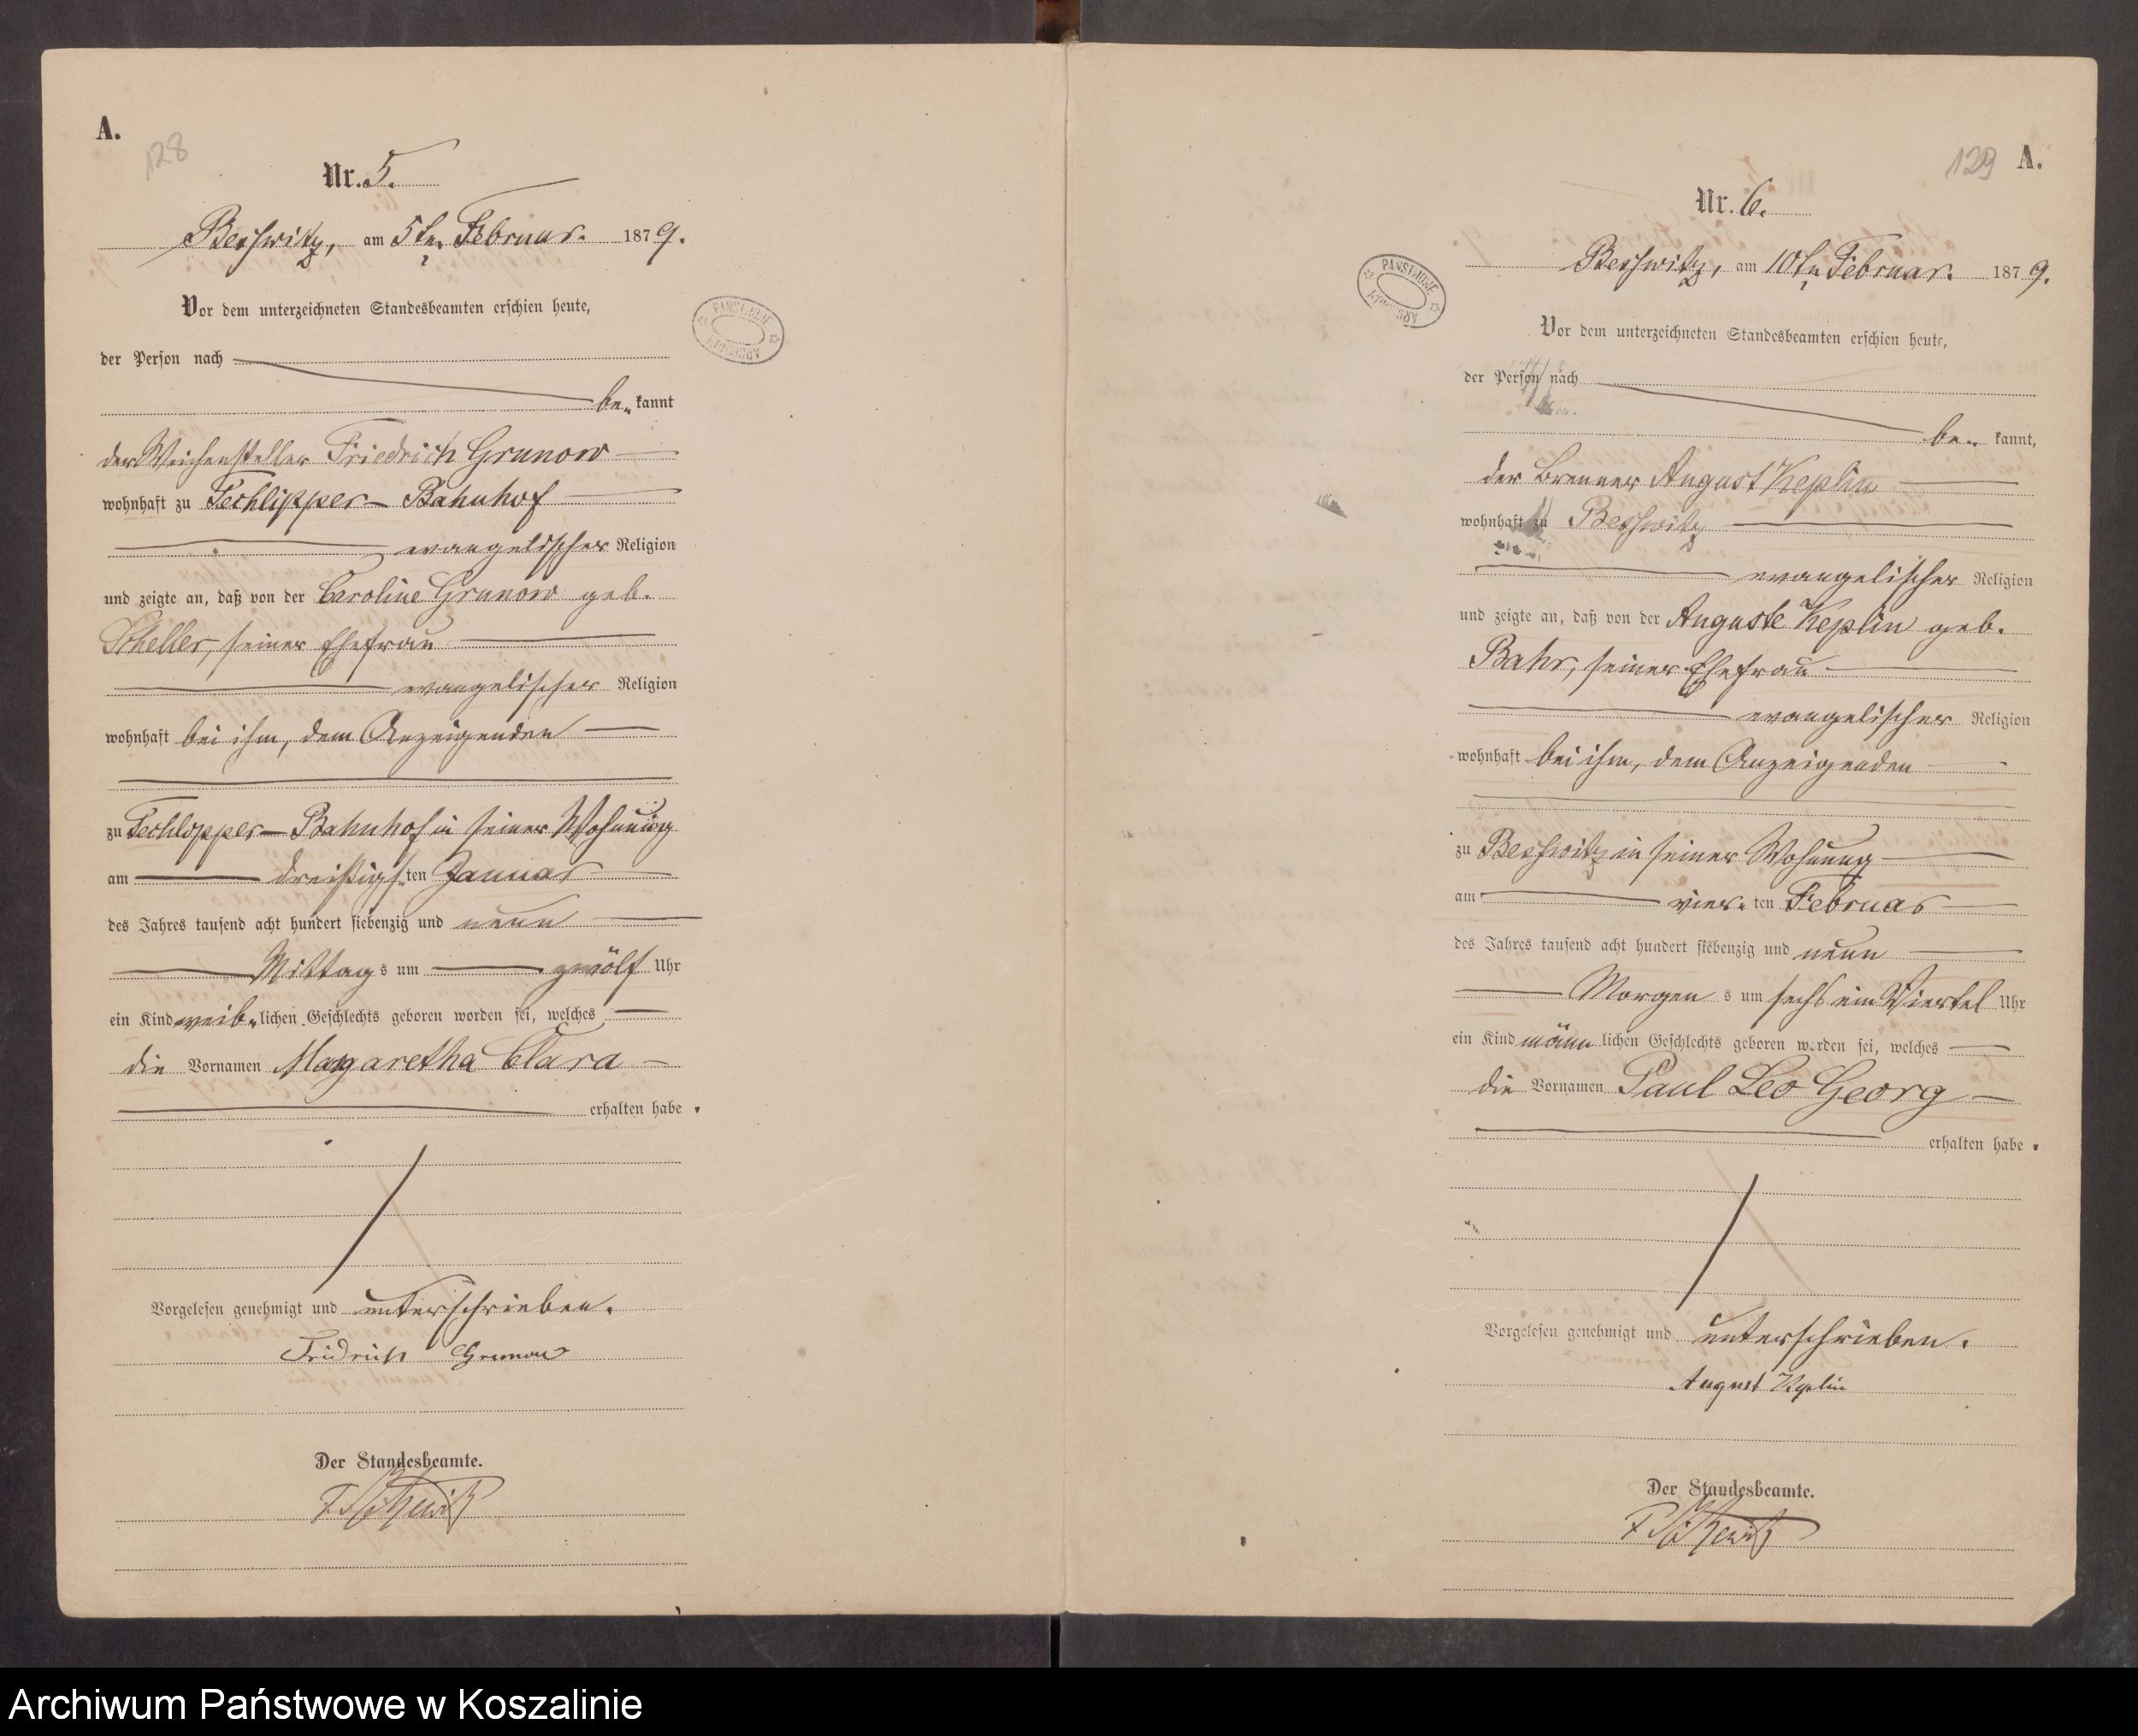 A.
128
Nr. 5.
Besswitz, am 5ten Februar. 1879.
Vor dem unterzeichneten Standesbeamten erschien heute,
der Person nach
be= kannt
der Weichensteller Friedrich Grunow
wohnhaft zu Techlipper- Bahnhof
evangelischer Religion
und zeigte an, daß von der Caroline Grunow geb.
seiner Ehefrau
evangelischer Religion
wohnhaft bei ihm, dem Anzeigenden
zu Techlipper- Bahnhof in seiner Wohnung
am dreißigsten Januar
des Jahres tausend acht hundert siebenzig und neun
Mittags um zwölf Uhr
ein Kind weib=lichen Geschlechts geboren worden sei, welches
die Vornamen Margaretha Clara
erhalten habe.
Vorgelesen genehmigt und unterschrieben.
Fridrich Grunow
Der Standesbeamte.
PANSTWOWE
ARCHIWUM
129
A.
Nr. 6.
Besswitz, am 10ten Februar. 1879.
Vor dem unterzeichneten Standesbeamten erschien heute,
der Person nach
be= kannt,
der Brenner August Keplin
wohnhaft zu Besswitz
evangelischer Religion
und zeigte an, daß von der Auguste Keplin geb.
Bahr, seiner Ehefrau
evangelischer Religion
wohnhaft bei ihm, dem Anzeigenden
zu Besswitz in seiner Wohnung
am vier=ten Februar
des Jahres tausend acht hundert siebenzig und neun
Morgens um sechs ein Viertel Uhr
ein Kind männlichen Geschlechts geboren worden sei, welches
die Vornamen Paul Leo Georg
erhalten habe.
Vorgelesen genehmigt und unterschrieben.
August Keplin
Der Standesbeamte.
PANSTWOWE
Archiwum Państwowe w Koszalinie